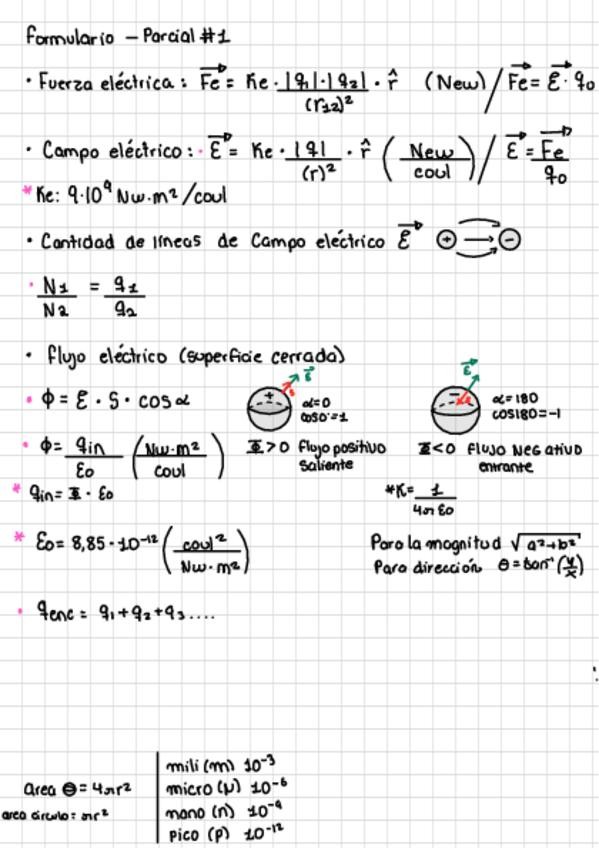 Formulario – Parcial #1
• Fuerza eléctrica: Fe = Ke · |q1|·|q2| / (r12)² · r̂ (New) / Fe = E · q0
• Campo eléctrico: · E = Ke · |q| / (r)² · r̂ (New / coul) / E = Fe / q0
* Ke: 9·10⁹ Nw·m²/coul
• Cantidad de líneas de Campo eléctrico E + → −
• N1 / N2 = q1 / q2
• flujo eléctrico (superficie cerrada)
• Φ = E · S · cos α
+ S E α=0 cos0°=1
− E α=180 cos180=-1
• Φ = qin / Eo (Nw·m² / coul)
Φ>0 flujo positivo saliente
Φ<0 flujo NEGativo entrante
* qin = Φ · Eo
*K = 1 / 4π Eo
* Eo = 8,85·10⁻¹² (coul² / Nw·m²)
Para la magnitud √a²+b²
Para dirección θ = tan⁻¹ (y/x)
• qenc = q1+q2+q3....
area = 4πr²
area círculo = πr²
mili (m) 10⁻³
micro (μ) 10⁻⁶
nano (n) 10⁻⁹
pico (p) 10⁻¹²